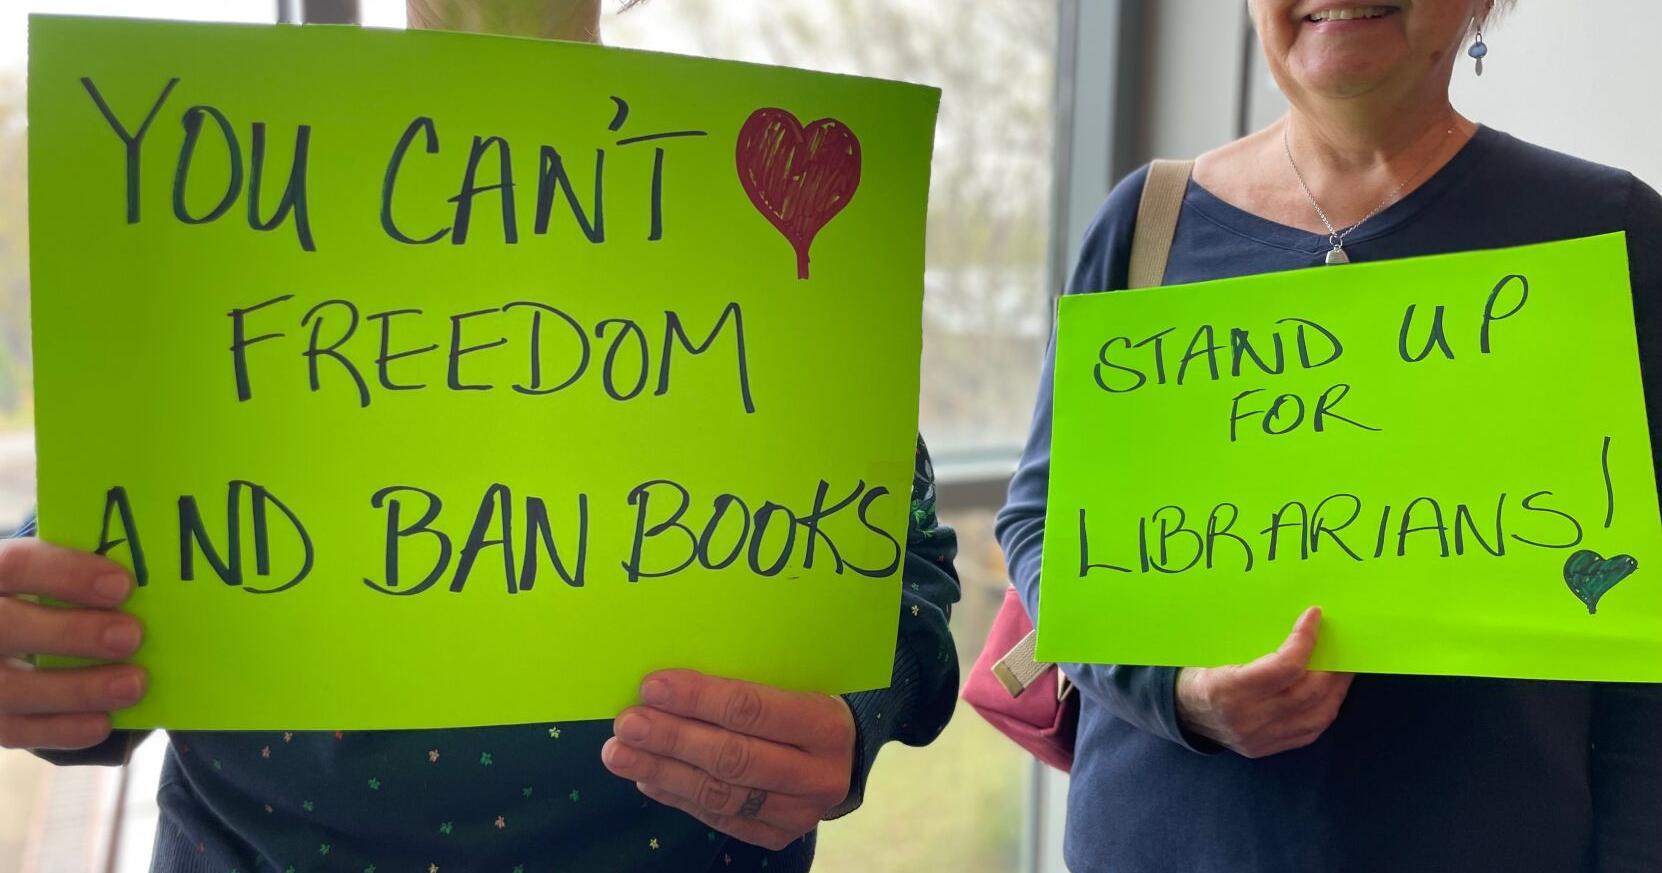 YOU CAN'T ❤
FREEDOM
AND BAN BOOKS
STAND UP
FOR
LIBRARIANS!